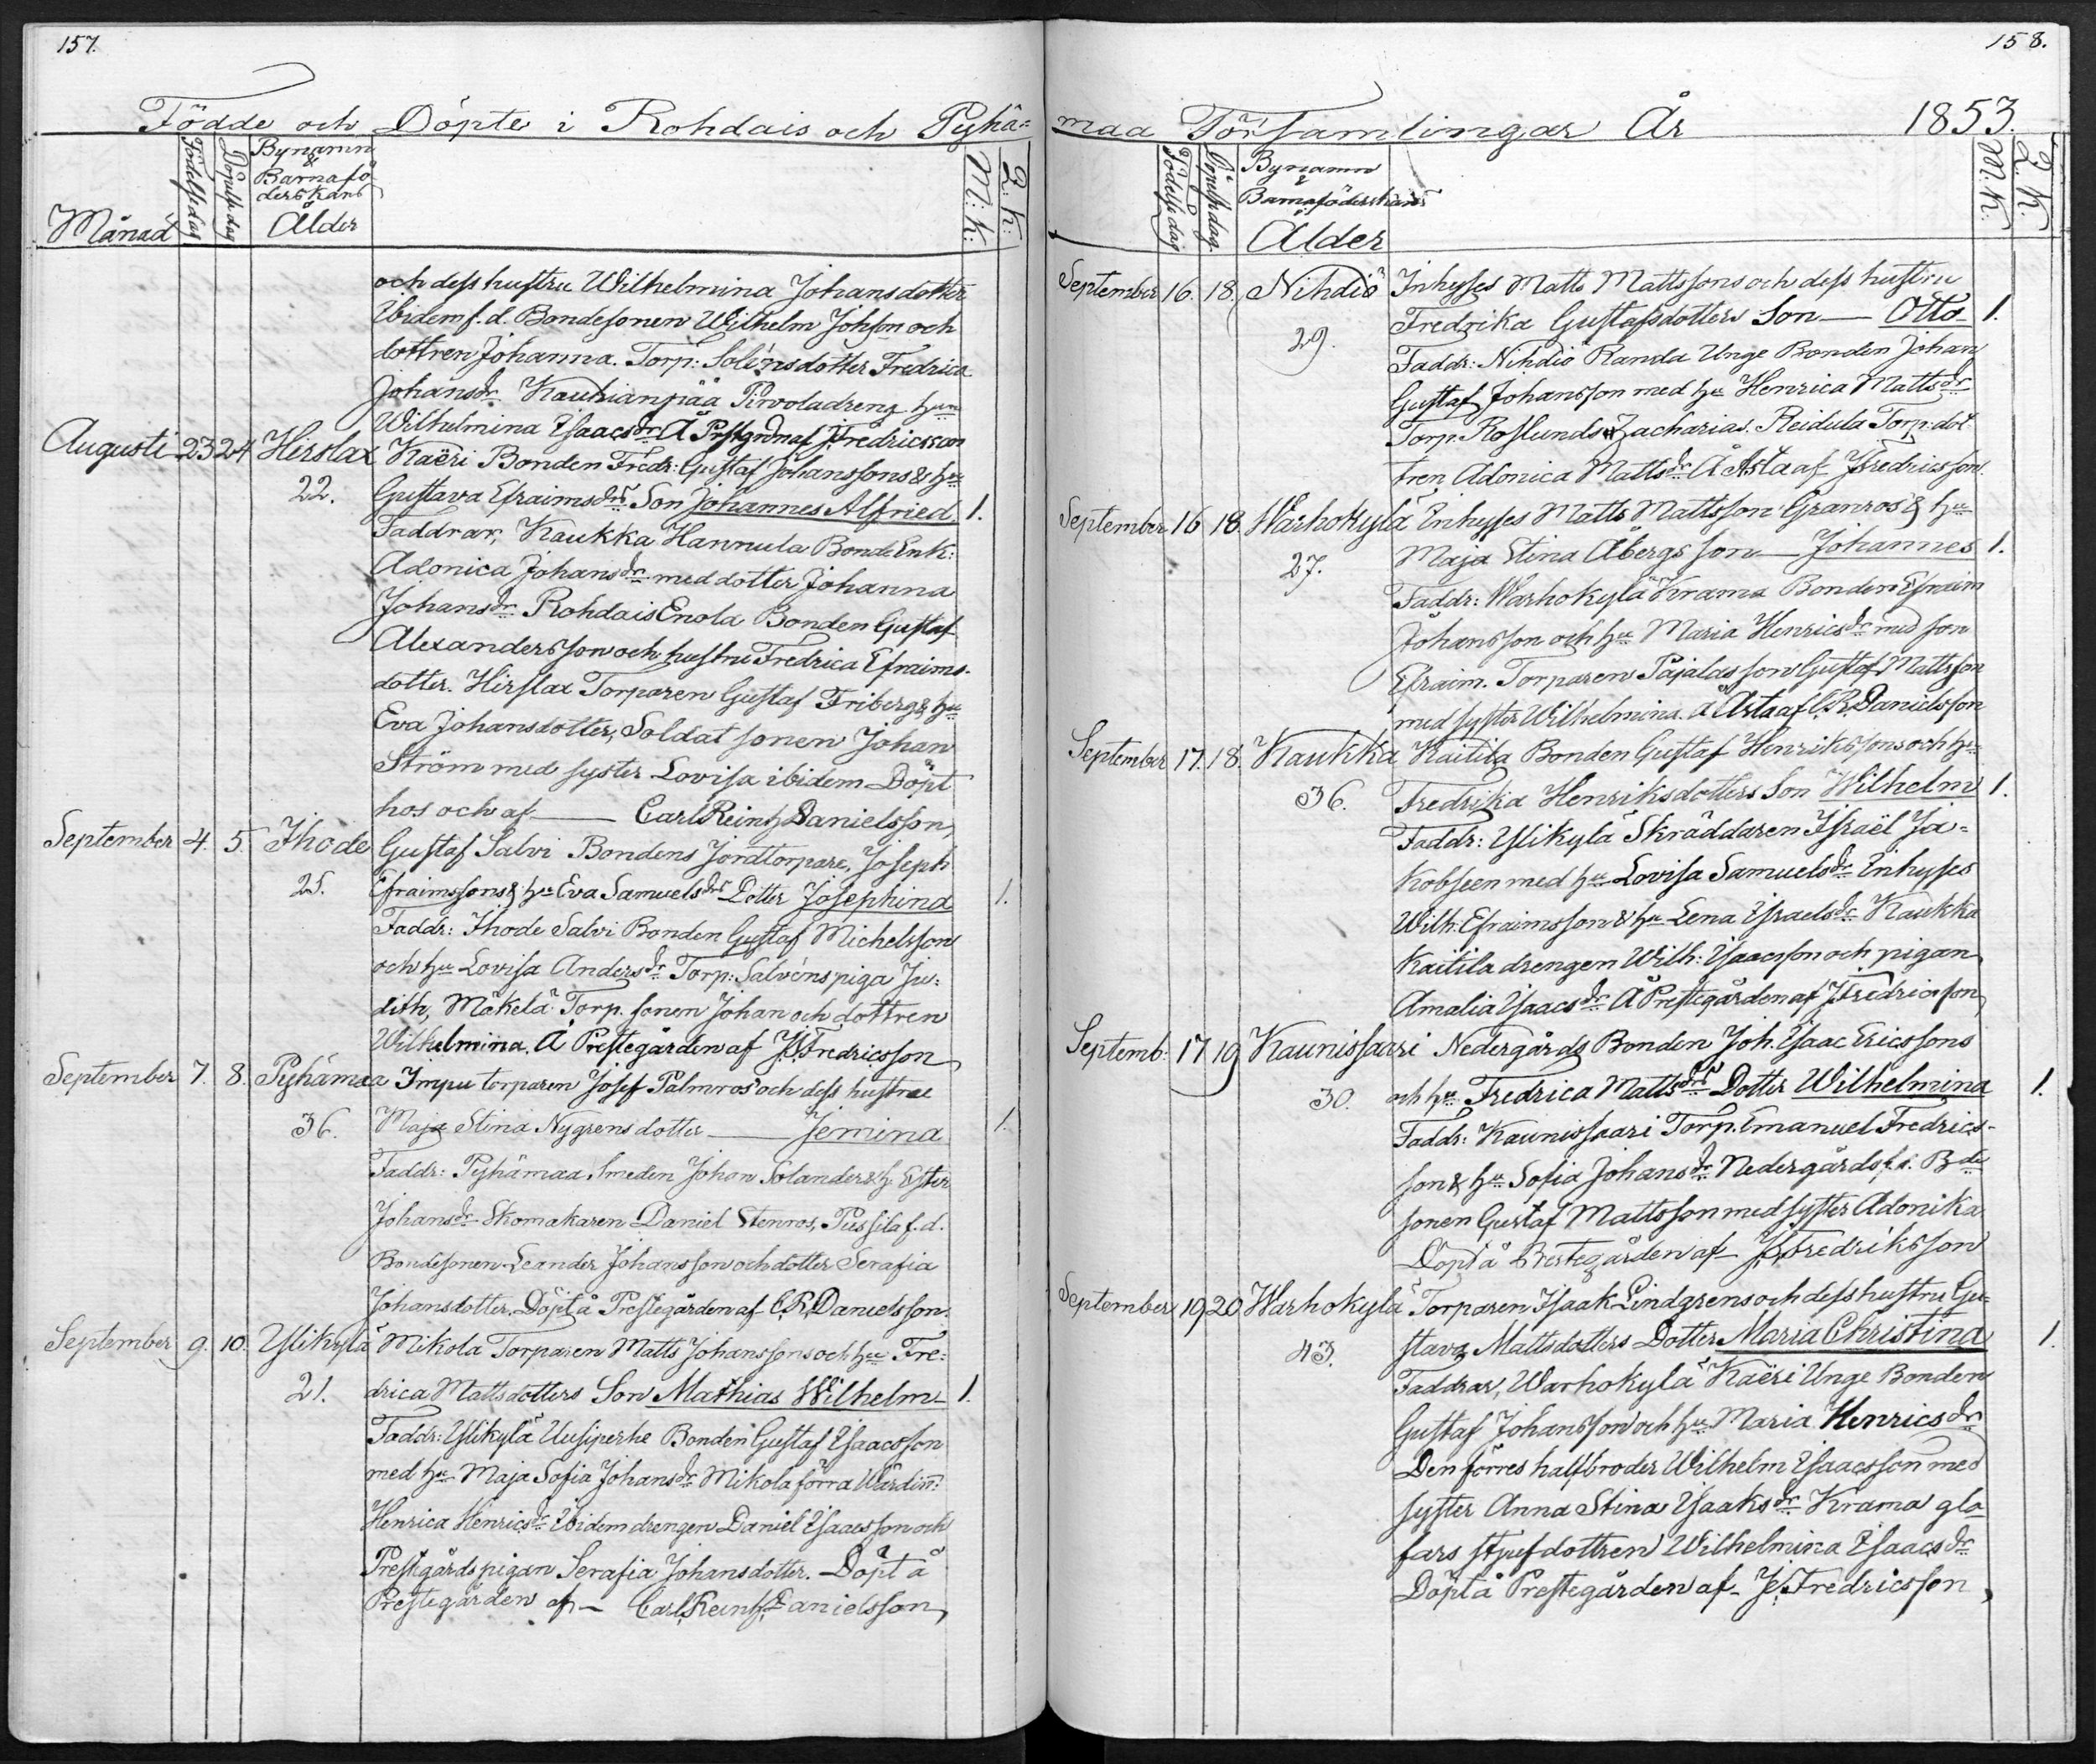 157.
Födde och Döpte i Rohdais och Pyhä=
Månad
Födelsedag
Döpelsedag
Bynamn
&
Barnafö
derskans
Ålder
M: K:
Q: K:
och dess hustru Wilhelmina Johansdotter
Ibidem f. d. Bondesonen Wilhelm Johsson och
dottren Johanna. Torp: Solénsdotter Fredrica
Johansdr Kauhianpää Pirvoladreng hun
Wilhelmina Isaacsdr Å Prstgrdn af J Fredricsson
Augusti 23 24 Hirslax Kaëri Bonden Fredr: Gustaf Johanssons & hu
22. Gustava Efraimsdrs Son Johannes Alfried 1.
Faddrar, Kaukka Hannula Bonde Enk:
Adonica Johansdr med dotter Johanna
Johansdr Rohdais Enola Bonden Gustaf
Alexandersson och hustru Fredrica Efraims-
dotter. Hirslax Torparen Gustaf Friberg & hu
Eva Johansdotter, Soldat sonen Johan
Ström med syster Lovisa ibidem Döpt
hos och af — Carl Reinh Danielsson
September 4. 5. Ihode Gustaf Salvi Bondens Jordtorpare, Joseph
25. Efraimssons & hu Eva Samuelsdrs Dotter Josephina 1.
Faddr: Ihode Salvi Bonden Gustaf Michelsson
och hu Lovisa Andersdr Torp: Salvéns piga Ju:
dith, Mäkelä Torp. sonen Johan och dottren
Wilhelmina. Å Prestegården af J Fredricsson
September 7. 8. Pyhämaa Impu torparen Josef Palmros och dess hustrue
36. Maja Stina Nygrens dotter — Jemina 1.
Faddr: Pyhämaa Smeden Johan Solander & h. Ester
Johansdr Skomakaren Daniel Stenros, Pussila f. d.
Bondesonen Leander Johansson och dotter Serafia
Johansdotter. Döpt å Prestegården af C. R. Danielsson
September 9. 10. Ylikylä Mikola Torparen Matts Johanssons och hu Fre:
21. drica Mattsdotters Son Mathias Wilhelm 1.
Faddr: Ylikylä Uusiperhe Bonden Gustaf Isaacsson
med hu Maja Sofia Johansdr Mikola förra Wärdin:
Henrica Henricsdr Ibidem drengen Daniel Isaacsson och
Prestgårds pigan Serafia Johansdotter. Döpt å
Prestegården af — Carl Reinh. Danielsson
158.
maa Församlingar År 1853.
Födelsedag
Döpelsedag
Bynamn
&
Barnaföderskans
Ålder
M: K.
Q. K.
September 16. 18. Nihdiö Inhyses Matts Mattssons och dess hustru
29. Fredrika Gustafsdotters Son — Otto 1.
Faddr: Nihdiö Randa Unge Bonden Johan
Gustaf Johansson med hu Henrica Mattsdr
Torp. Roslunds Zacharias. Reidula Torp: dot
tren Adonica Mattsdr Å Asta af J Fredricsson.
September 16 18. Warhokylä Inhyses Matts Mattsson Granros & hu
27. Maja Stina Åbergs son — Johannes 1.
Faddr: Warhokylä Krama Bonden Efraim
Johansson och hu Maria Henricsdr med son
Efraim. Torparen Pajalas son Gustaf Mattsson
med syster Wilhelmina. Å Asta af C. R. Danielsson
September 17. 18. Kaukka Kaitila Bonden Gustaf Henrikssons och hu
36. Fredrika Henriksdotters Son Wilhelm 1.
Faddr: Ylikylä Skräddaren Israël Ja=
kobseen med hu Lovisa Samuelsdr Inhyses
Wilh: Efraimsson & hu Lena Israelsdr Kaukka
Kaitila drengen Wilh: Isaacsson och pigan
Amalia Isaacsdr Å Prestegården af J Fredricsson
Septemb: 17 19 Kaunissaari Nedergårds Bonden Joh. Isaac Ericssons
30. och hu Fredrica Mattsdrs Dotter Wilhelmina 1.
Faddr: Kaunissaari Torp. Emanuel Fredrics-
son & hu Sofia Johansdr Nedergårds f. d. Bde
sonen Gustaf Mattsson med syster Adonika
Döpt å Prestegården af J Fredriksson
September 19 20 Warhokylä Torparen Isaak Lindgrens och dess hustru Gu=
43. stava Mattsdotters Dotter Maria Christina 1.
Faddrar, Warhokylä Kaëri Unge Bonden
Gustaf Johansson och hu Maria Henricsdr
Den förres halfbroder Wilhelm Isaacsson med
syster Anna Stina Isaaksdr Krama gla
fars stjufdottren Wilhelmina Isaacsdr
Döpt å Prestegården af J Fredricsson